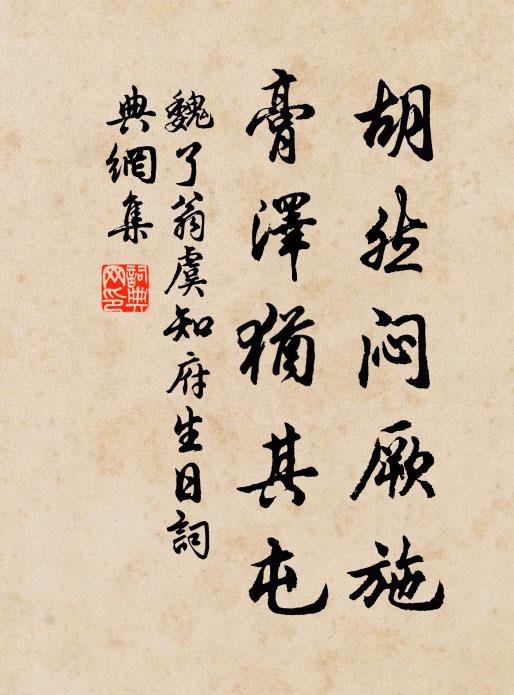 胡然闷厥施
膏澤猶其屯
魏了翁虞知府生日詞
典網集
詞典网印